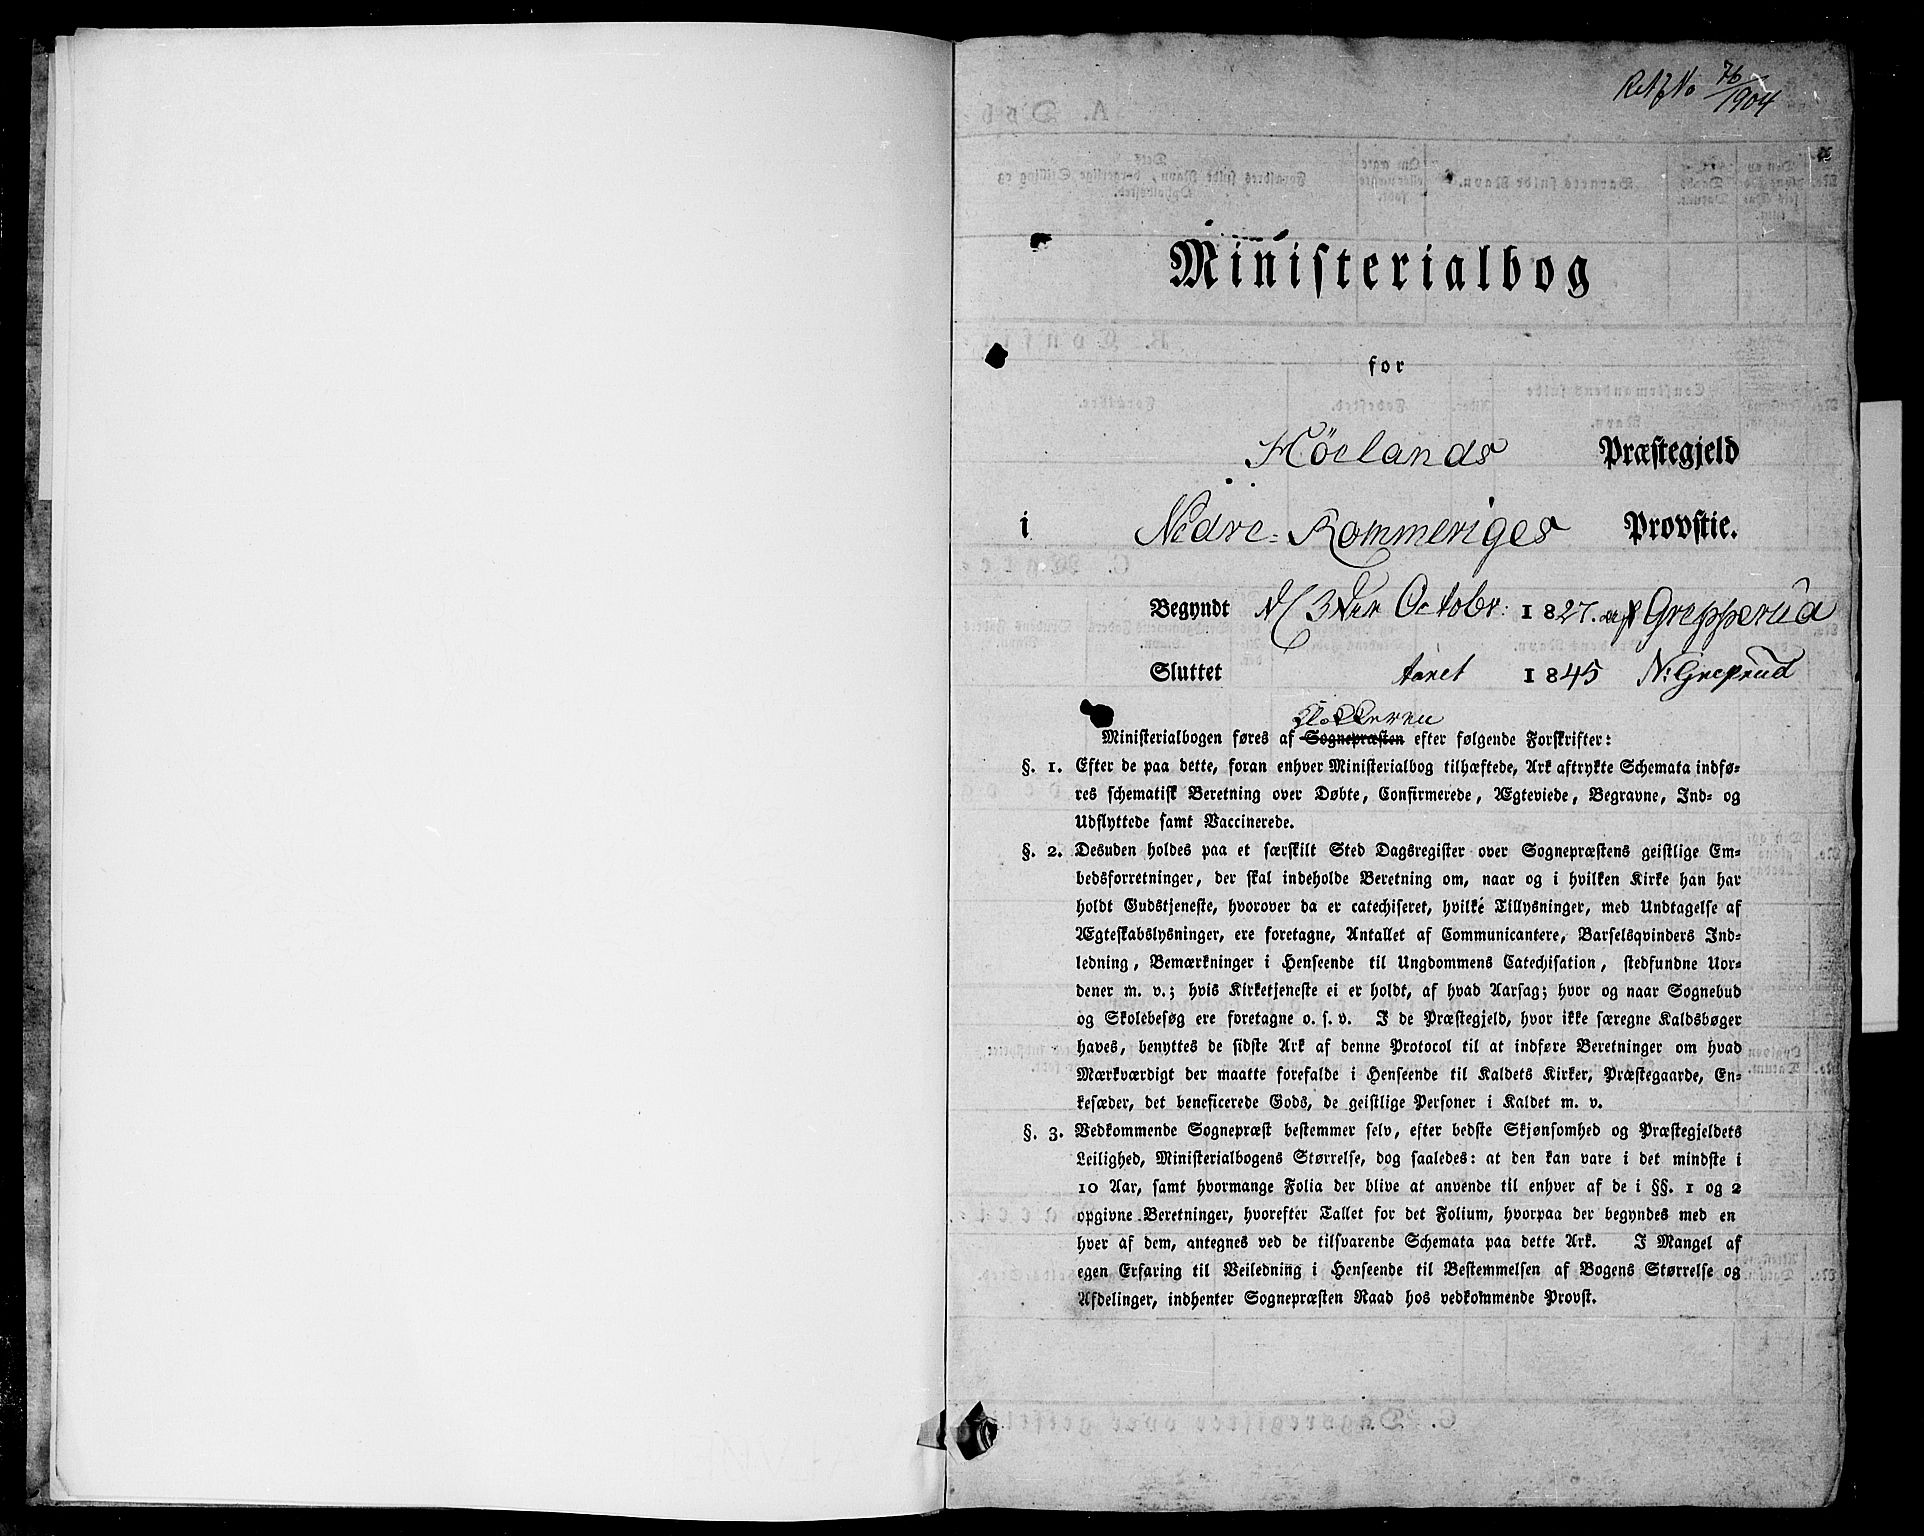 No 76/1904
Ministerialbog
for
Höelands Præstegjeld
i Nedre-Rommeriges Provstie.
Begyndt d/3die Octobr: 1827. af Grepperud
Sluttet Aaret 1845 N: Greprud
Klokkeren
Ministerialbogen føres af Sognepræsten efter følgende Forskrifter:
§. 1. Efter de paa dette, foran enhver Ministerialbog tilhæftede, Ark aftrykte Schemata indfø-
res schematisk Beretning over Døbte, Confirmerede, Ægteviede, Begravne, Ind- og
Udflyttede samt Vaccinerede.
§. 2. Desuden holdes paa et særskilt Sted Dagsregister over Sognepræstens geistlige Em-
bedsforretninger, der skal indeholde Beretning om, naar og i hvilken Kirke han har
holdt Gudstjeneste, hvorover da er catechiseret, hvilke Tillysninger, med Undtagelse af
Ægteskabslysninger, ere foretagne, Antallet af Communicantere, Barselqvinders Ind-
ledning, Bemærkninger i Henseende til Ungdommens Catechisation, stedfundne Uor-
dener m. v.; hvis Kirketjeneste ei er holdt, af hvad Aarsag; hvor og naar Sognebud
og Skolebesøg ere foretagne o. s. v. I de Præstegjeld, hvor ikke særegne Kaldsbøger
haves, benyttes de sidste Ark af denne Protocol til at indføre Beretninger om hvad
Mærkværdigt der maatte forefalde i Henseende til Kaldets Kirker, Præstegaarde, En-
kesæder, det beneficerede Gods, de geistlige Personer i Kaldet m. v.
§. 3. Vedkommende Sognepræst bestemmer selv, efter bedste Skjønsomhed og Præstegjeldets
Leilighed, Ministerialbogens Størrelse, dog saaledes: at den kan vare i det mindste i
10 Aar, samt hvormange Folia der blive at anvende til enhver af de i §§. 1 og 2
opgivne Beretninger, hvorefter Tallet for det Folium, hvorpaa der begyndes med en
hver af dem, antegnes ved de tilsvarende Schemata paa dette Ark. I Mangel af
egen Erfaring til Veiledning i Henseende til Bestemmelsen af Bogens Størrelse og
Afdelinger, indhenter Sognepræsten Raad hos vedkommende Provst.